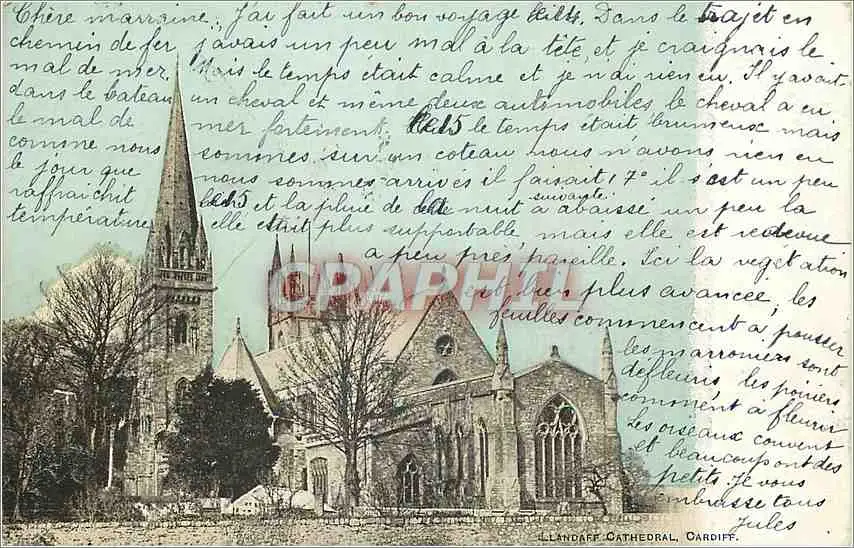 Chère marraine, J'ai fait un bon voyage le 14. Dans le trajet en
chemin de fer j'avais un peu mal à la tête, et je craignais le
mal de mer. Mais le temps était calme et je n'ai rien eu. Il y avait
dans le bateau un cheval et même deux automobiles, le cheval a eu
le mal de mer fortement. Le 15 le temps était brumeux mais
comme nous sommes sur un coteau nous n'avons rien eu
le jour que nous sommes arrivés il faisait 17° il s'est un peu
raffraichit le 15 et la pluie de la nuit suivante a abaissé un peu la
température elle était plus supportable, mais elle est redevenue
a peu près pareille. Ici la végétation
est bien plus avancée, les
feuilles commencent à pousser
les marronniers sont
défleuris, les poiriers
commencent à fleurir
Les oiseaux couvent
et beaucoup ont des
petits. Je vous
embrasse tous
Jules
CARTAPHIL
LLANDAFF CATHEDRAL, CARDIFF.